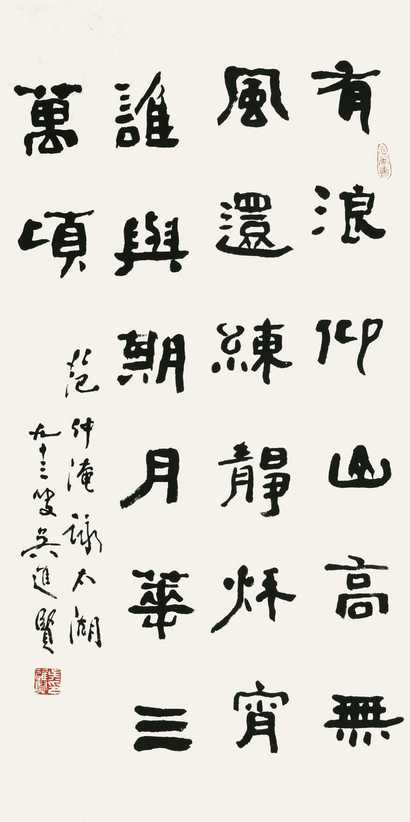 有浪仰山高無
風還練静烌宵
誰與期月華三
萬頃
范仲淹詠太湖
九十三叟吳進賢